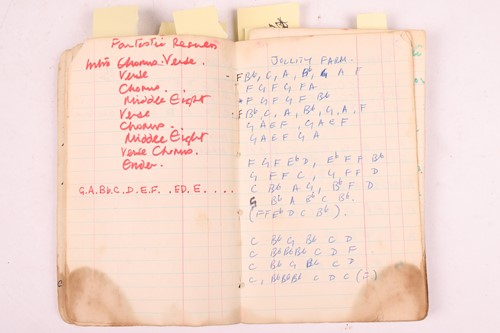 Fantastic
Intro Chorus. Verse.
Verse
Chorus.
Middle Eight
Verse
Chorus.
Middle Eight
Verse Chorus.
Ender.
G.A.Bb.C.D.E.F. .ED.E....
JOLLITY FARM.
F Bb, C, A, Bb, G A F
F G F G F A
* F G F G F Bb
F Bb G, A, Bb, G, A, F
G A E F , G A E F
G A E F G A
F G F Eb D, Eb F F Bb
G F F C, G, F F D
C Bb A G, Bb F D
G Bb A Bb C Bb.
(F F Eb D C Bb).
C Bb G Bb C D
C BbBbBb C D F
C Bb G Bb C D
C, BbBbBb C D C